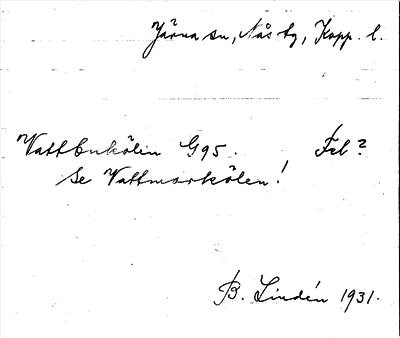 Järna sn, Nås tg, Kopp. l.
Vattbukölen G95. Fel?
Se Vattmorkölen!
B. Lindén 1931.